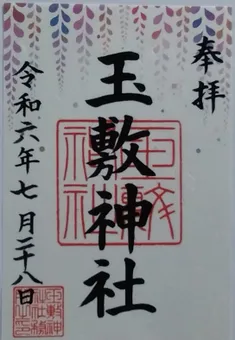 奉拝
玉敷神社
令和六年七月二十八日